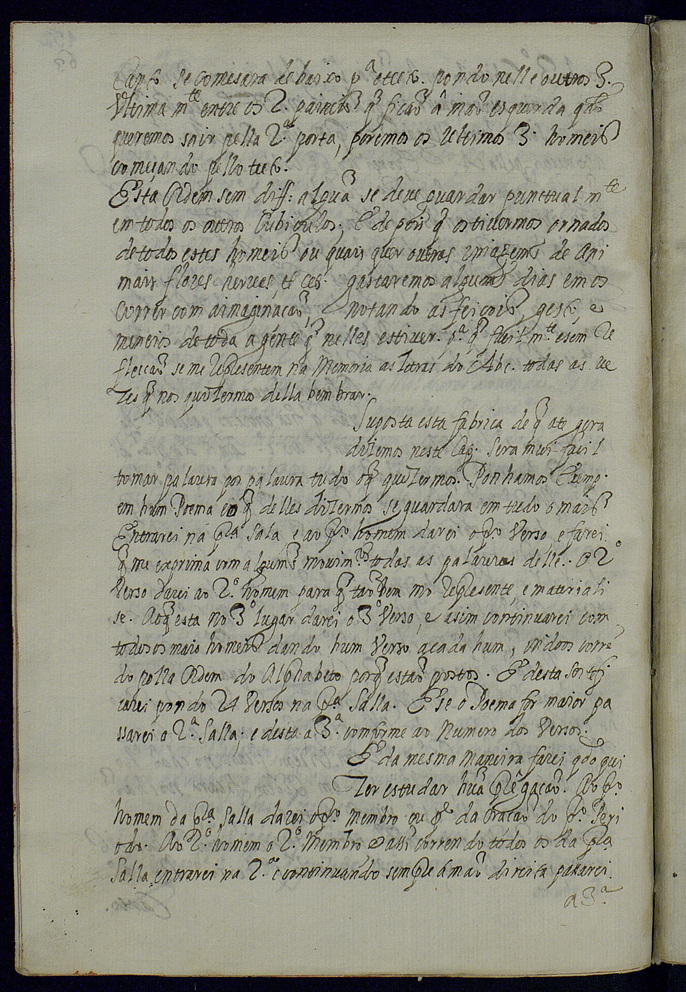 Canto se Comesara de baixo pª o tecto. pondo nelle outros 3.
Ultima mte entre os 2. paineis q̃ ficaõ á maõ esquerda qdo
queremos sair pella 2.ª porta, poremos os Ultimos 3. homeis
começando pello tecto.
Esta Ordem sem diff. algũa se deve guardar punctual mte
em todos os outros Cubiculos. E depois q̃ os tivermos ornados
de todos estes homeis ou quais quer outras imagens de Ani
mais flores hervas et ces. gastaremos alguns dias em os
Correr com a imaginaçaõ, notando as feiçois, gestos, e
mineios de toda a gente q̃ nelles estiver. pª q̃ facil mte e sem Re
flexaõ se me Representem na Memoria as letras do Abc. todas as ve
zes q̃ nos quizermos della lembrar.
Suposta esta fabrica de q̃ ate gora
dizemos neste Cap. Sera mui facil
tomar palavra por palavra tudo o q̃ quizermos. Ponhamos Exemp.
em hum Poema q̃ delles dizermos se guardara em tudo o mais
Entrarei na pra Sala e ao pro homem darei o pro Verso e farei
q̃ me exprima com alguns movimtos todas as palavras delle. O 2º
Verso darei ao 2.º homem para q̃ taõ bem mo Represente, e materiali
se. Ao q̃ esta no 3º lugar darei o 3 Verso, e asim continuarei com
todos os mais homeis dando hum Verso a cada hum, indoos corre
do polla Ordem do Alphabeto porq̃ estaõ postos. E desta sorte fi
carei pondo 24 Versos na pra Salla. E se o Poema for maior pa
ssarei a 2.ª Salla. e desta a 3.ª conforme ao Numero dos Versos.
E da mesma maneira farei qdo qui
zer estudar hũa Pregaçaõ. Ao pro
homem da pra Salla darei o pro membro ou da Oraçaõ do pro Peri
odo. Ao 2.º homem o 2.º Membro e assi correndo todos os da pra
Salla, entrarei na 2.ª e continuando sempre á maõ direita pasarei
a 3.ª